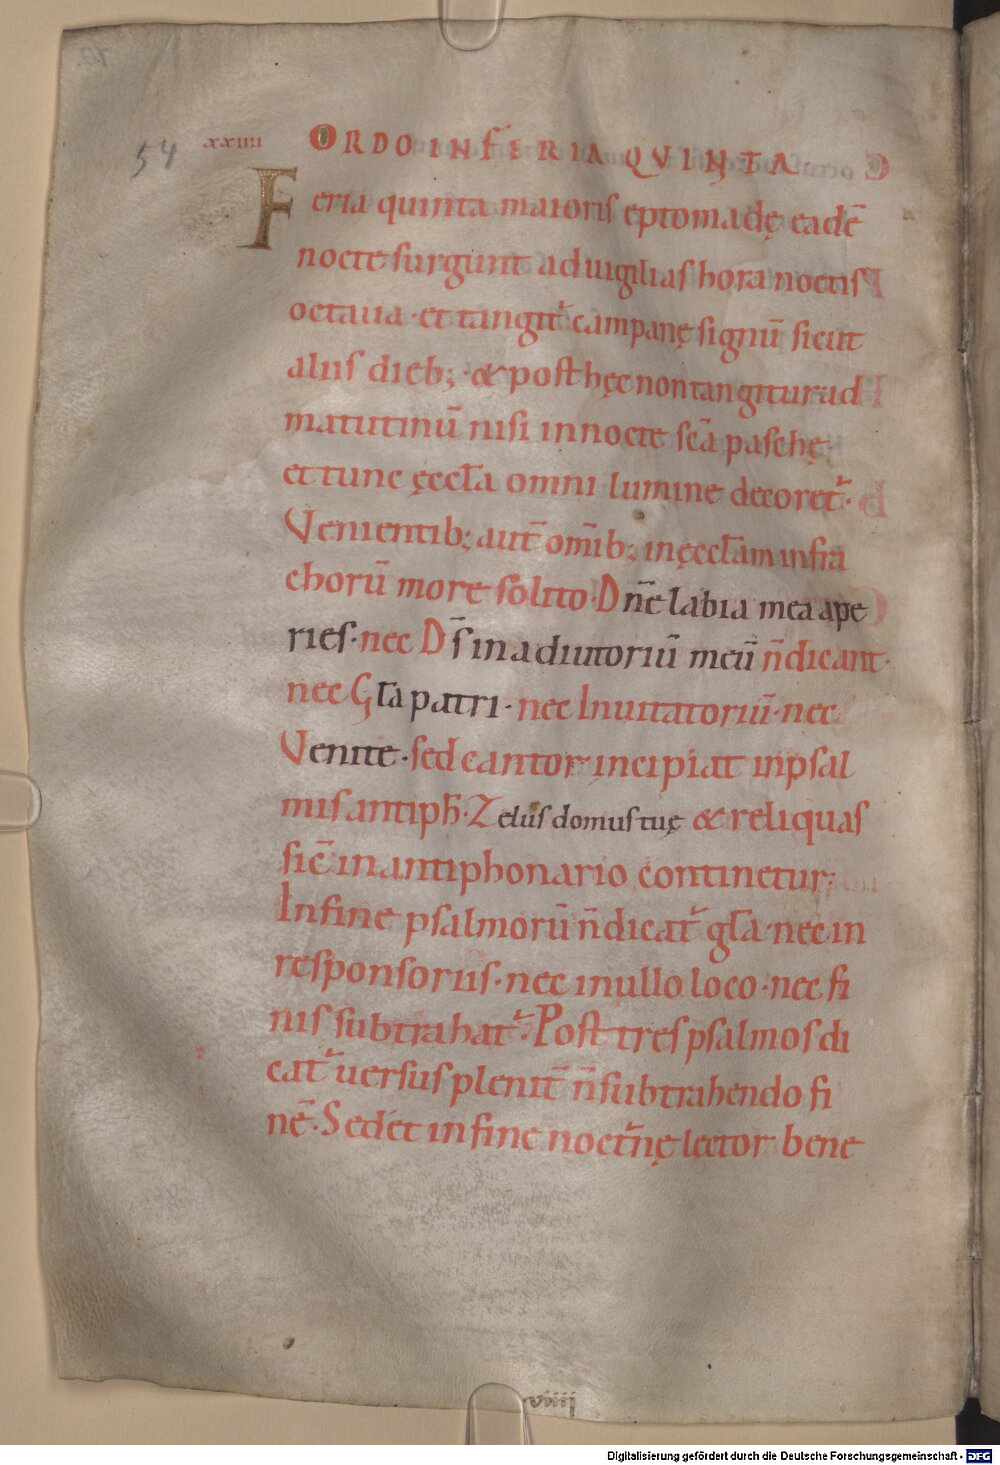 54 xxiiii ORDO IN FERIA QVINTA
Feria quinta maioris eptomadę eadē
nocte surgunt ad uigilias hora noctis
octaua · et tangit᷑ campanę signū sicut
aliis dieb; · & post hęc non tangitur ad
matutinū nisi in nocte scā paschę ·
et tunc ęccła omni lumine decoret᷑ ·
Venientib; aut̄ om̄ib; in ęccłam infra
chorū more solito · Dn̄e labia mea ape
ries · nec D̄s in adiutoriū meū n̄ dicant ·
nec Gła patri · nec Inuitatoriū · nec
Venite · sed cantor incipiat in psal
mis antiph̄ · Zelus domus tuę & reliquas
sic̄ in antiphonario continetur ;
In fine psalmorū n̄ dicat᷑ gła · nec in
responsoriis · nec in ullo loco · nec fi
nis subtrahat᷑ · Post tres psalmos di
cat᷑ uersus plenit̄ n̄ subtrahendo fi
nē · Sedet in fine noct᷑nę lector bene
viiij
Digitalisierung gefördert durch die Deutsche Forschungsgemeinschaft - DFG